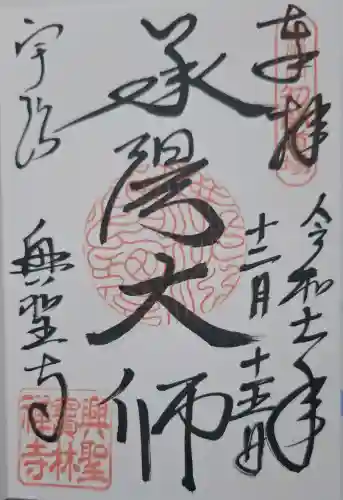 奉拝
令和 年
十二月
十五日
承陽大師
宇治
興聖寺
興聖
寶林
禅寺